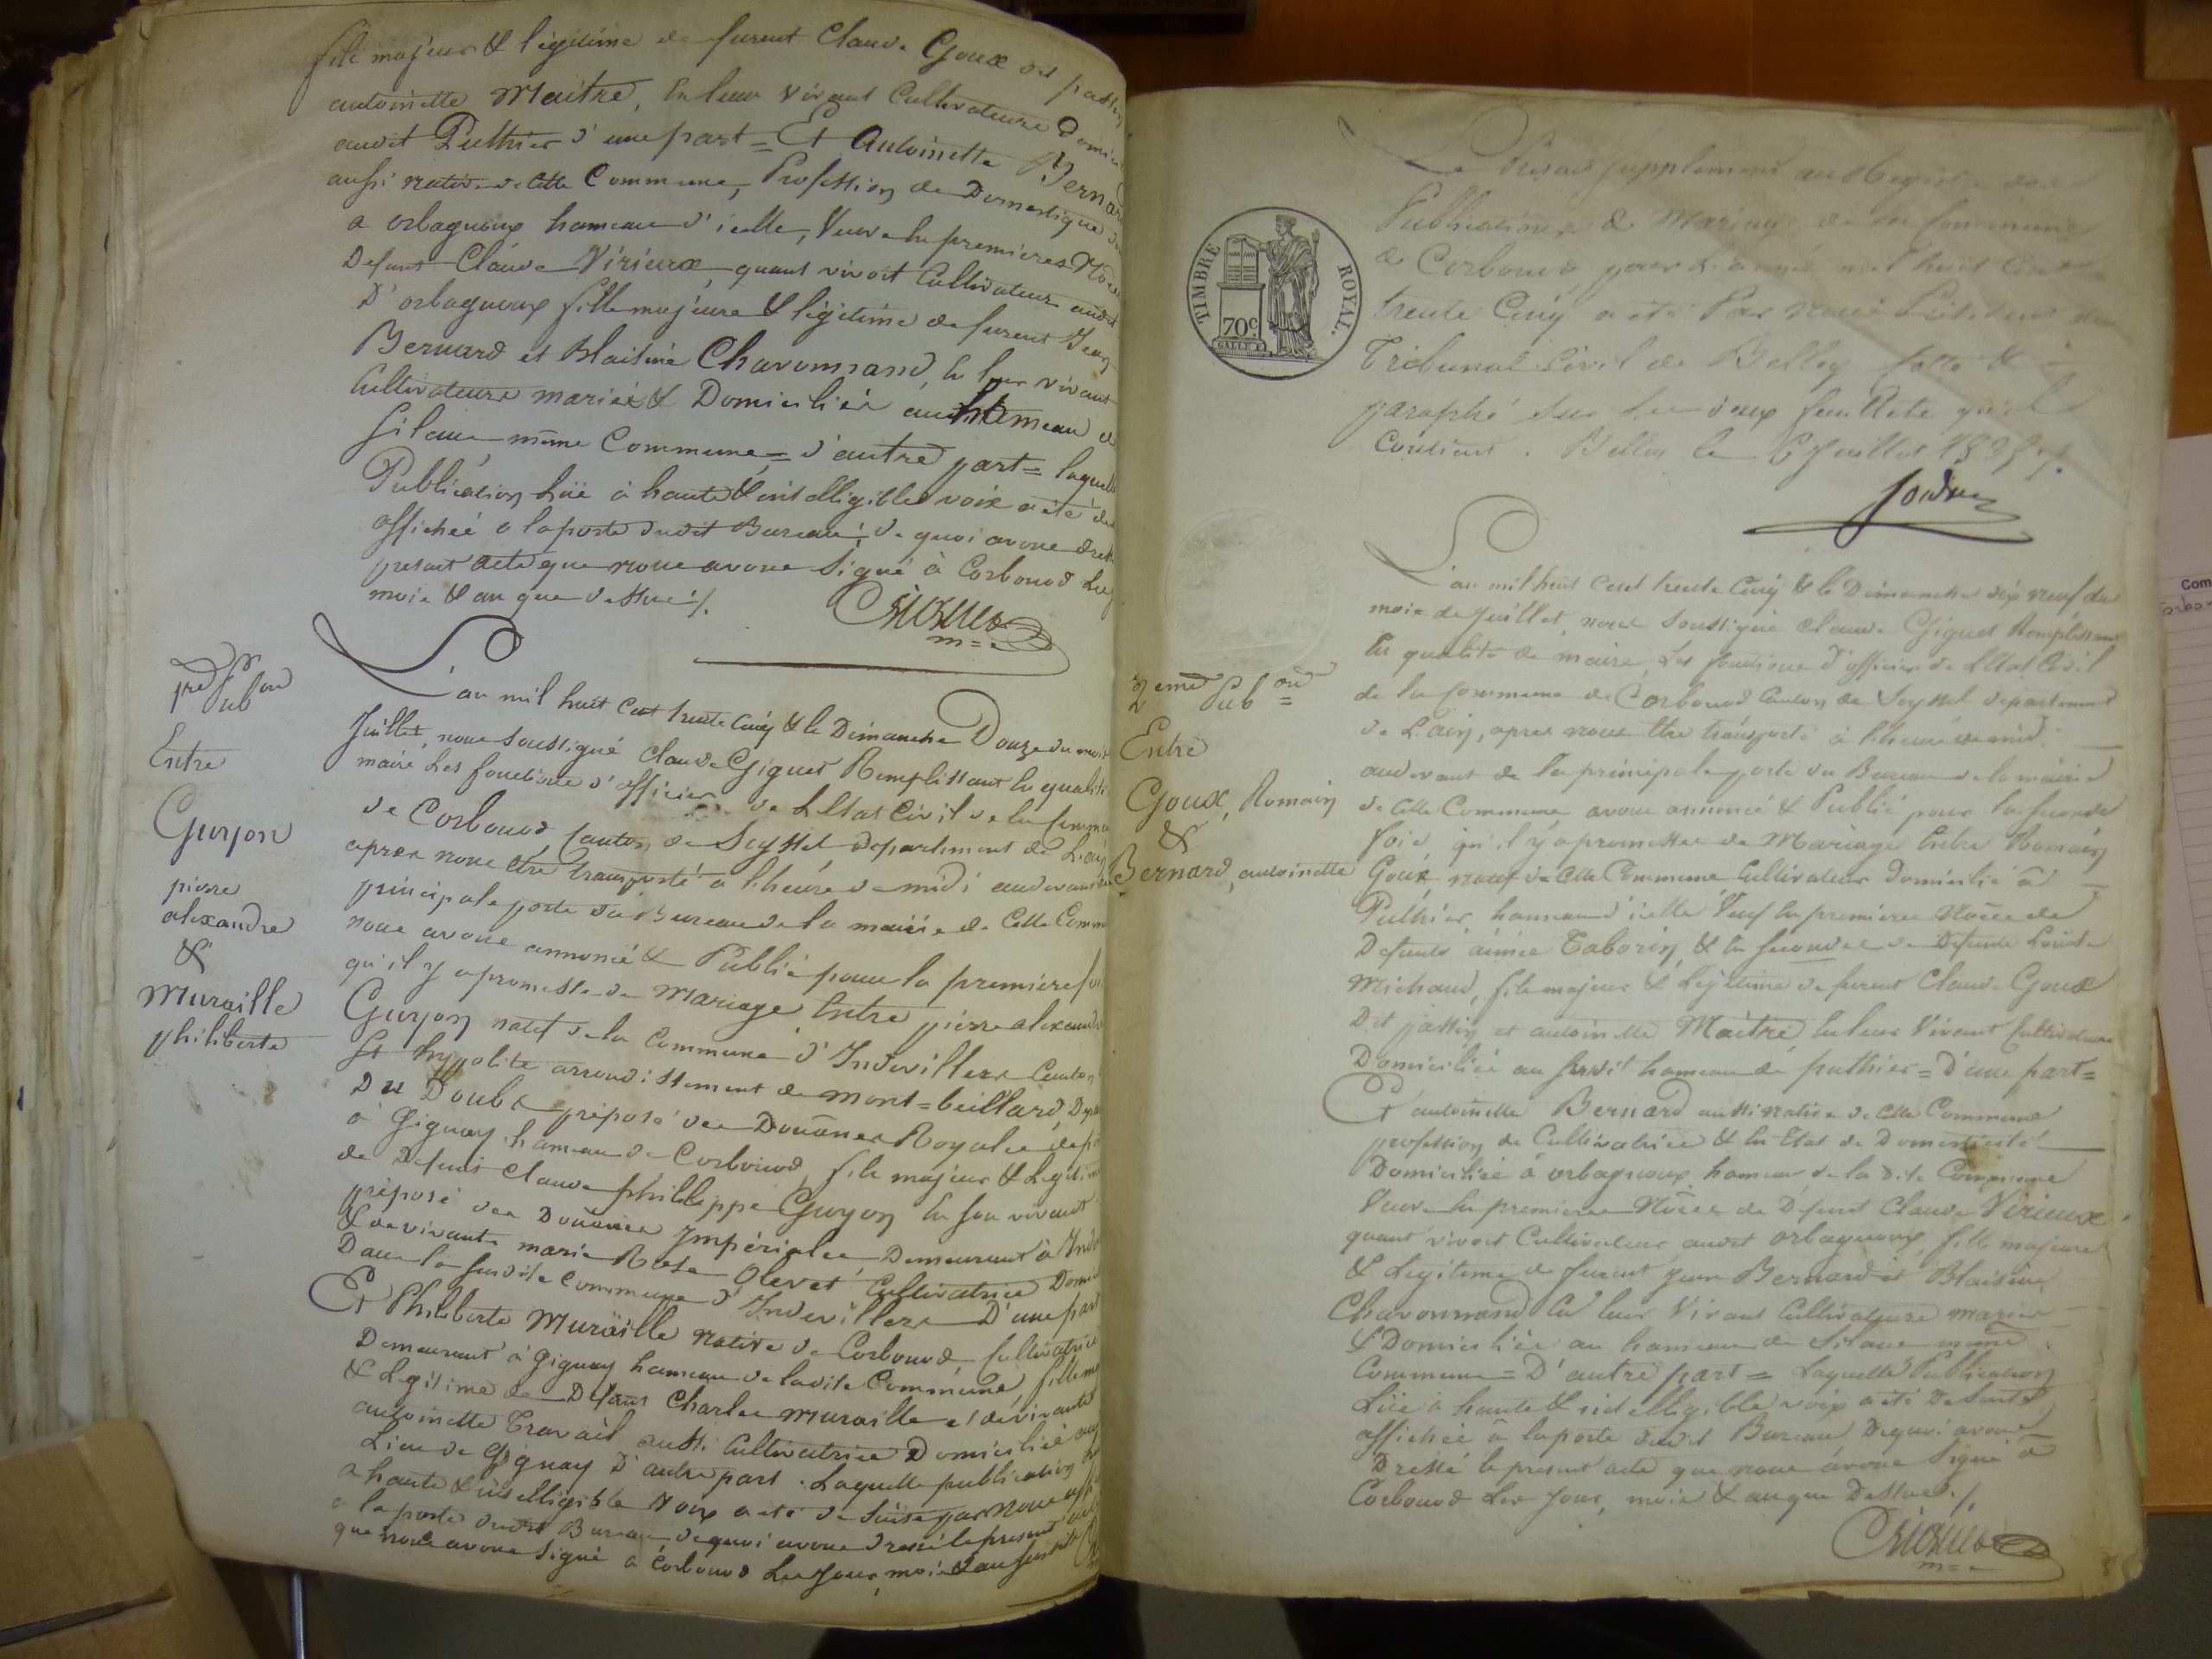 fils majeur & légitime de furent Claude Goux dit passin
antoinette Maitre, En leur vivant Cultivateurs Domici
audit Puthier d'une part = Et Antoinette Bernard
aussi native de Cette Commune, Profession de Domestique
a orbagnoux hameau d'icelle, Veuve En premieres Noces
Defunt Claude Virieux quant vivoit Cultivateur audit
D'orbagnoux fille majeure & légitime de furent Jean
Bernard et Blaisine Charonnand, En leur vivant
Cultivateurs mariés & Domiciliés au hameau de
Silans même Commune = d'autre part = laquelle
Publication Lüe à haute & intelligible voix a été de
affichée a la porte dudit Bureau, de quoi avons dressé
present acte que nous avons Signé à Corbonod Les
mois & an que dessus ./.
Giguet
m=e
pre Pub on
Entre
Guyon
pierre
alexandre
&
Muraille
philiberte
L'an mil huit Cent trente Cinq & le Dimanche Douze du mois
Juillet, nous Soussigné Claude Giguet Remplissant En qualité
maire Les fonctions d'officier de L'Etat Civil de la Commune
de Corbonod Canton de Seyssel departement de L'ain
apres nous être transporté a l'heure de midi audevant
principale porte du Bureau de la mairie de Cette Commune
nous avons annoncé & Publié pour la premiere fois
qu'il y a promesse de Mariage Entre pierre alexandre
Guyon natif de la Commune d'Indevillers Canton
St hypolite arrondissement de mont=beillard, Dep
Du Doubs préposé des Douänes Royales
à Gignay, hameau de Corbonod, fils majeur & Légitime
de Defunt Claude philippe Guyon En son vivant
préposé des Douänes Jmpériales Demeurant à Inde
& de vivante marie Rose Olevet, Cultivatrice Domici
Dans la susdite Commune d'Indevillers D'une part
Et Philiberte Muraille native de Corbonod Cultivatrice
Demeurant à Gignay hameau de ladite Commune, fille m
& Légitime de Defunt Charles muraille et de vivante
antoinette Travail aussi Cultivatrice Domiciliée au
Lieu de Gignay D'autre part. Laquelle publication
a haute & intelligible voix a été de suite par nous aff
a la porte dudit Bureau, de quoi avons dressé le présent acte
que nous avons Signé a Corbonod Les Jour, mois & an susdits
Le Présent supplément au Registre des
Publications de Mariage de la commune
de Corbonod pour l'année mil huit Cent
trente Cinq a été Par Nous Président du
Tribunal Civil de Belley Cotté &
paraphé sur les deux feuillets qu'il
Contient. Belley le 6 Juillet 1835 ./.
TIMBRE ROYAL.
70c
2eme Pub on
Entre
Goux, Romain
&
Bernard, antoinette
L'an mil huit Cent trente Cinq & le Dimanche dix neuf du
mois de Juillet, nous Soussigné Claude Giguet Remplissant
En qualité de maire, Les fonctions d'officier de L'Etat Civil
de la Commune de Corbonod Canton de Seyssel departement
de L'ain, apres nous être transporté à l'heure de midi
audevant de la principale porte du Bureau de la mairie
de Cette Commune avons annoncé & Publié pour la seconde
fois, qu'il y a promesse de Mariage Entre Romain
Goux, natif de Cette Commune Cultivateur Domicilié à
Puthier, hameau d'icelle Veuf En premieres Noces de
Defunte aimée Taborin, & En secondes de Defunte Louise
Michaud, fils majeur & Légitime de furent Claude Goux
Dit passin et antoinette Maitre En leur Vivant Cultivateurs
Domiciliés au susdit hameau de puthier = D'une part =
Et antoinette Bernard aussi native de Cette Commune
profession de Cultivatrice & En Etat de Domesticité
Domiciliée à orbagnoux hameau de la Dite Commune
Veuve En premieres Noces de Defunt Claude Virieux
quant vivoit Cultivateur audit orbagnoux, fille majeure
& Légitime de furent Jean Bernard et Blaisine
Charonnand En leur Vivant Cultivateurs mariés
& Domiciliés au hameau de Silans même
Commune = D'autre part = Laquelle Publication
Lüe à haute & intelligible voix a été De Suite
affichée à la porte dudit Bureau, De quoi avons
Dressé le présent acte que nous avons Signé à
Corbonod Les Jour, mois & an que Dessus ./.
Giguet
m=e